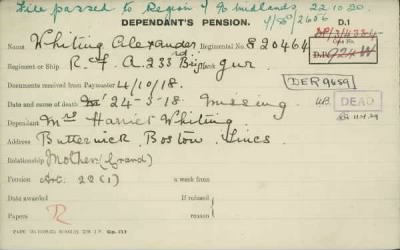 File passed to Region 4 % Midlands 22.10.20.
DEPENDANT'S PENSION. D.1
4/SD/2606
Name Whiting Alexander Regimental No. 820464
Regiment or Ship R.F.A. 233rd Brig Gnr.
Documents received from Paymaster 4/10/18. DER 9659
Date and cause of death 24-3-18. Missing. DEAD
Dependant Mrs Harriet Whiting
Address Butterwick Boston Lincs
Relationship Mother (Grand)
Pension Art. 22 (1) a week from
Date awarded If refused
Papers R reason